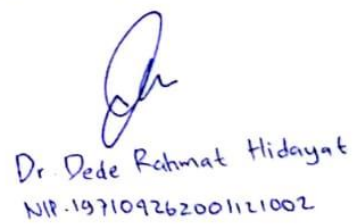 Dr. Dede Rahmat Hidayat
NIP. 197104262001121002